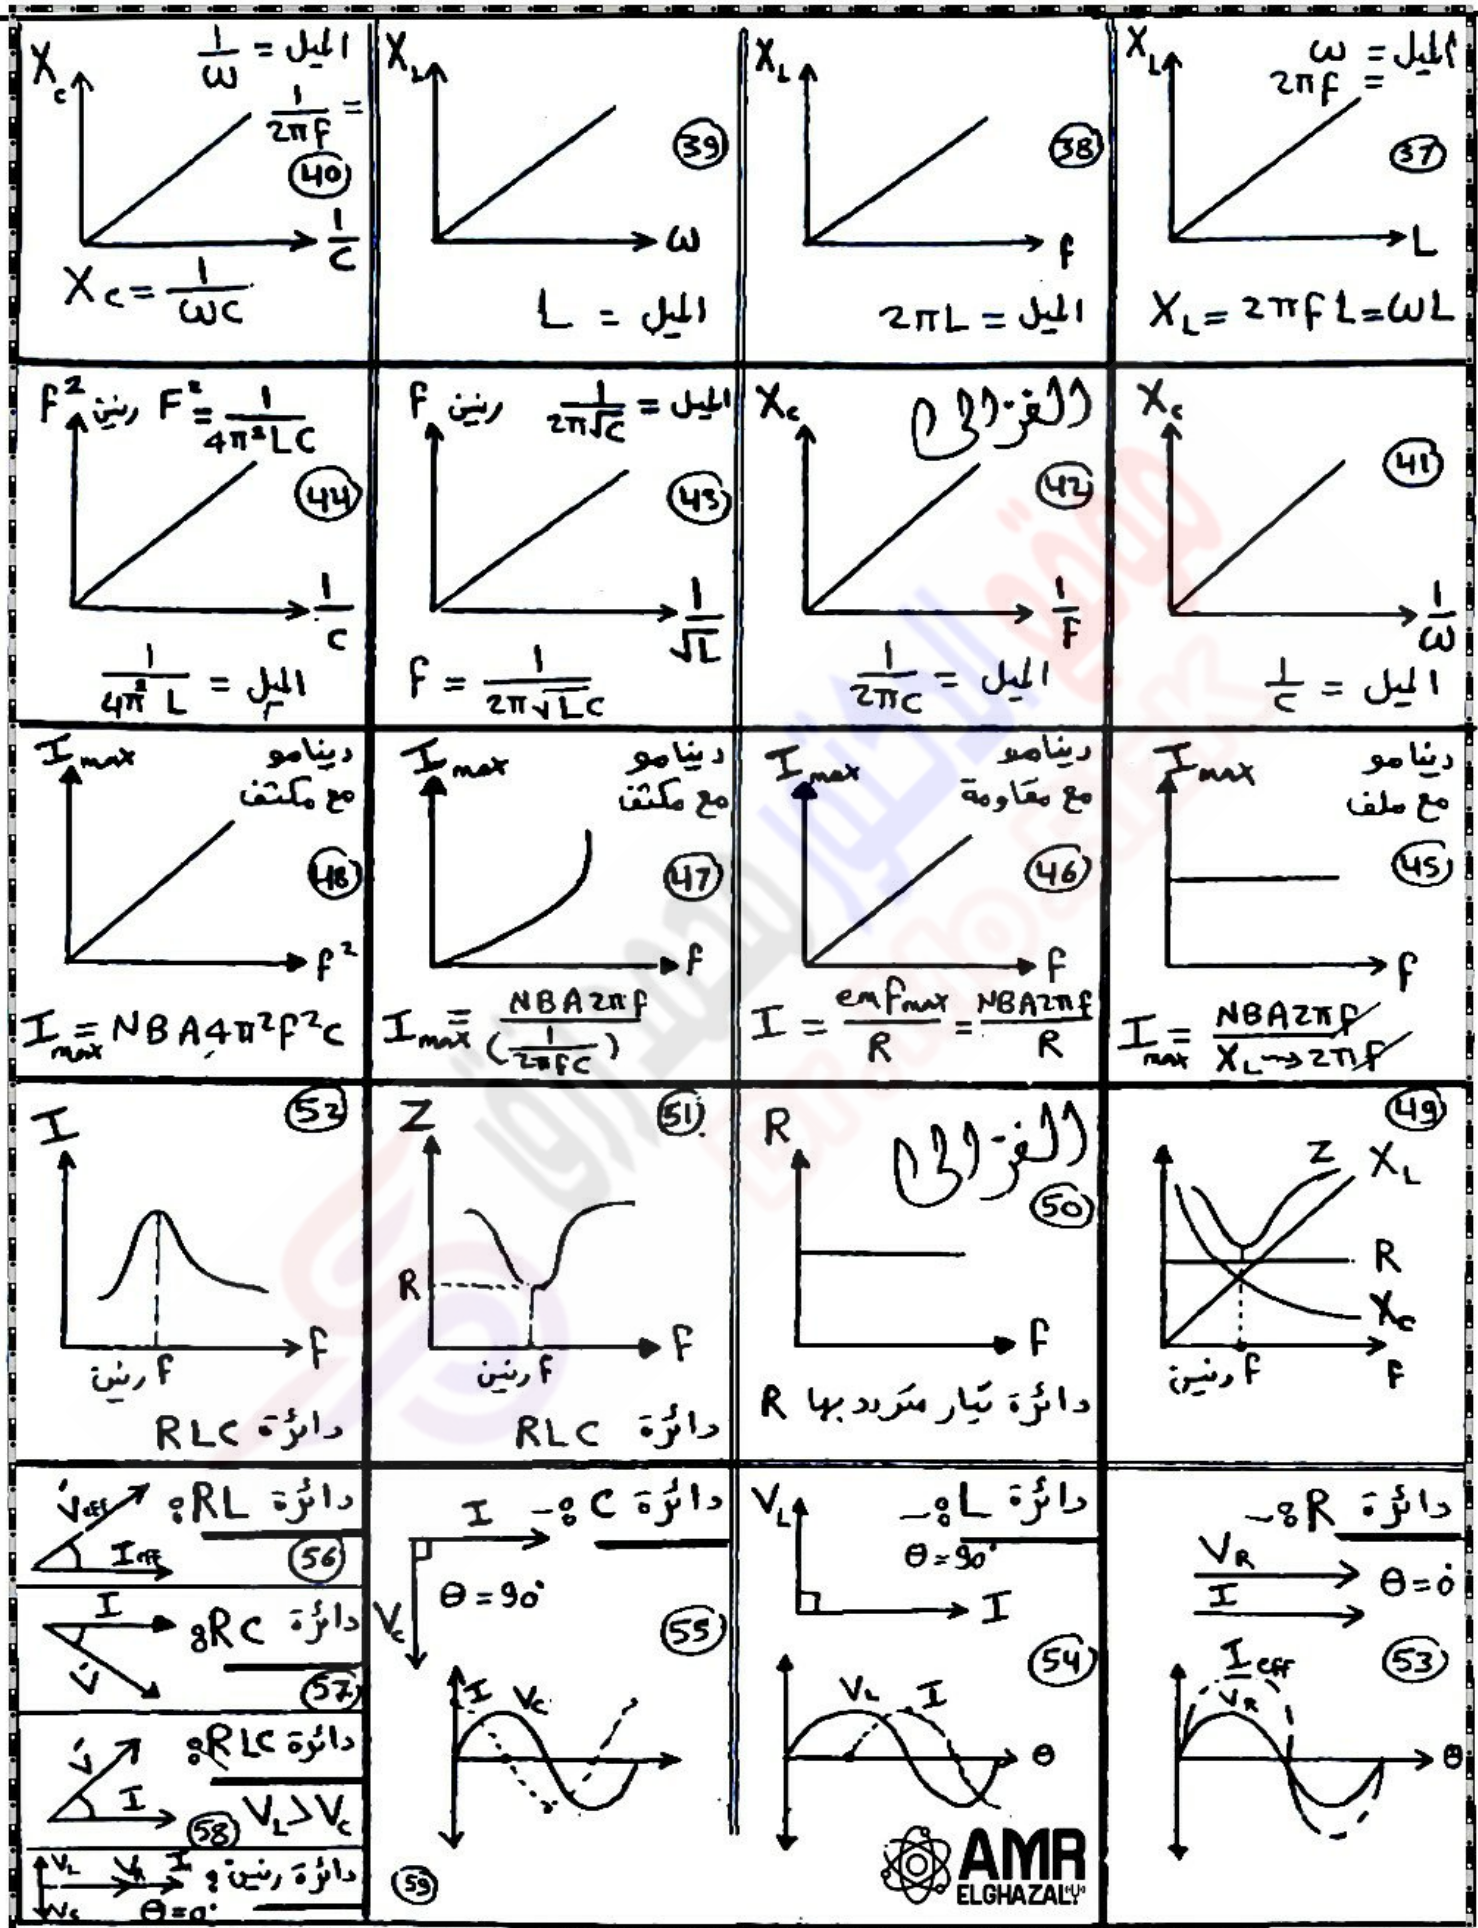 X_L
الميل = ω
= 2πf
37
L
X_L = 2πf L = ωL
X_L
38
f
الميل = 2πL
X_L
39
ω
الميل = L
X_c
الميل = 1/ω
= 1/2πF
40
1/C
X_c = 1/ωC
X_c
41
1/ω
الميل = 1/C
X_c
الغزالى
42
1/F
الميل = 1/2πC
f رنين
الميل = 1/2π√C
43
1/√L
f = 1/2π√LC
f² رنين
F² = 1/4π²LC
44
1/C
الميل = 1/4π²L
I max
دينامو
مع ملف
45
f
I max = NBA2πf / X_L → 2πf
I max
دينامو
مع مقاومة
46
f
I = emf max / R = NBA2πf / R
I max
دينامو
مع مكثف
47
f
I max = NBA2πf / (1/2πfC)
I max
دينامو
مع مكثف
48
f²
I max = NBA4π²f²C
49
Z
X_L
R
X_c
f رنين
F
R
الغزالى
50
F
دائرة تيار متردد بها R
Z
51
R
f رنين
F
دائرة RLC
I
52
f رنين
f
دائرة RLC
دائرة R :-
V_R
I
θ = 0°
53
I eff
V_R
θ
دائرة L :-
V_L
θ = 90°
I
54
V_L
I
θ
AMR
ELGHAZALY
دائرة C :-
I
θ = 90°
V_c
55
I
V_c
دائرة RL :
V eff
I eff
56
دائرة RC :
I
V
57
دائرة RLC :
V
I
V_L > V_c
58
دائرة رنين :
V_L
V_R
I
V_c
θ = 0°
59